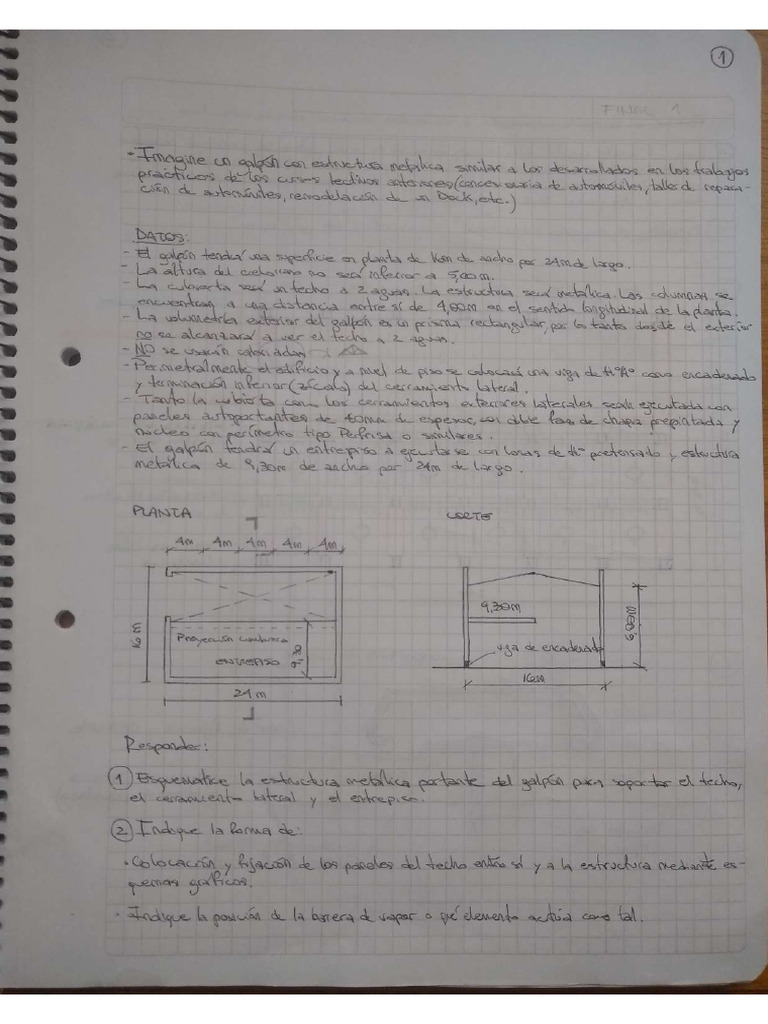 1
FINAL 1
- Imagine un galpón con estructura metálica similar a los desarrollados en los trabajos
prácticos de los cursos lectivos anteriores (concesionaria de automóviles, taller de repara-
ción de automóviles, remodelación de un Dock, etc.)
DATOS:
- El galpón tendrá una superficie en planta de 16m de ancho por 24m de largo.
- La altura del cielorraso no será inferior a 5,00m.
- La cubierta será un techo a 2 aguas. La estructura será metálica. Las columnas se
encuentran a una distancia entre sí de 4,00m en el sentido longitudinal de la planta.
- La volumetría exterior del galpón es un prisma rectangular, por lo tanto desde el exterior
no se alcanzará a ver el techo a 2 aguas.
- NO se usarán cabriadas
- Perimetralmente el edificio y a nivel de piso se colocará una viga de HºAº como encadenado
y terminación inferior (zócalo) del cerramiento lateral.
- Tanto la cubierta como los cerramientos exteriores laterales serán ejecutada con
paneles autoportantes de 40mm de espesor, con doble faz de chapa prepintada y
núcleo con perímetro tipo Perfrisa o similares.
- El galpón tendrá un entrepiso a ejecutarse con losas de Hº pretensado y estructura
metálica de 9,30m de ancho por 24m de largo.
PLANTA
CORTE
4m 4m 4m 4m 4m
16m
Proyección cumbrera
ENTREPISO
24 m
9,30m
viga de encadenado
16m
Responder:
1 Esquematice la estructura metálica portante del galpón para soportar el techo,
el cerramiento lateral y el entrepiso.
2 Indique la forma de:
• Colocación y fijación de los paneles del techo entre sí y a la estructura mediante es-
quemas gráficos.
• Indique la posición de la barrera de vapor o qué elemento actúa como tal.